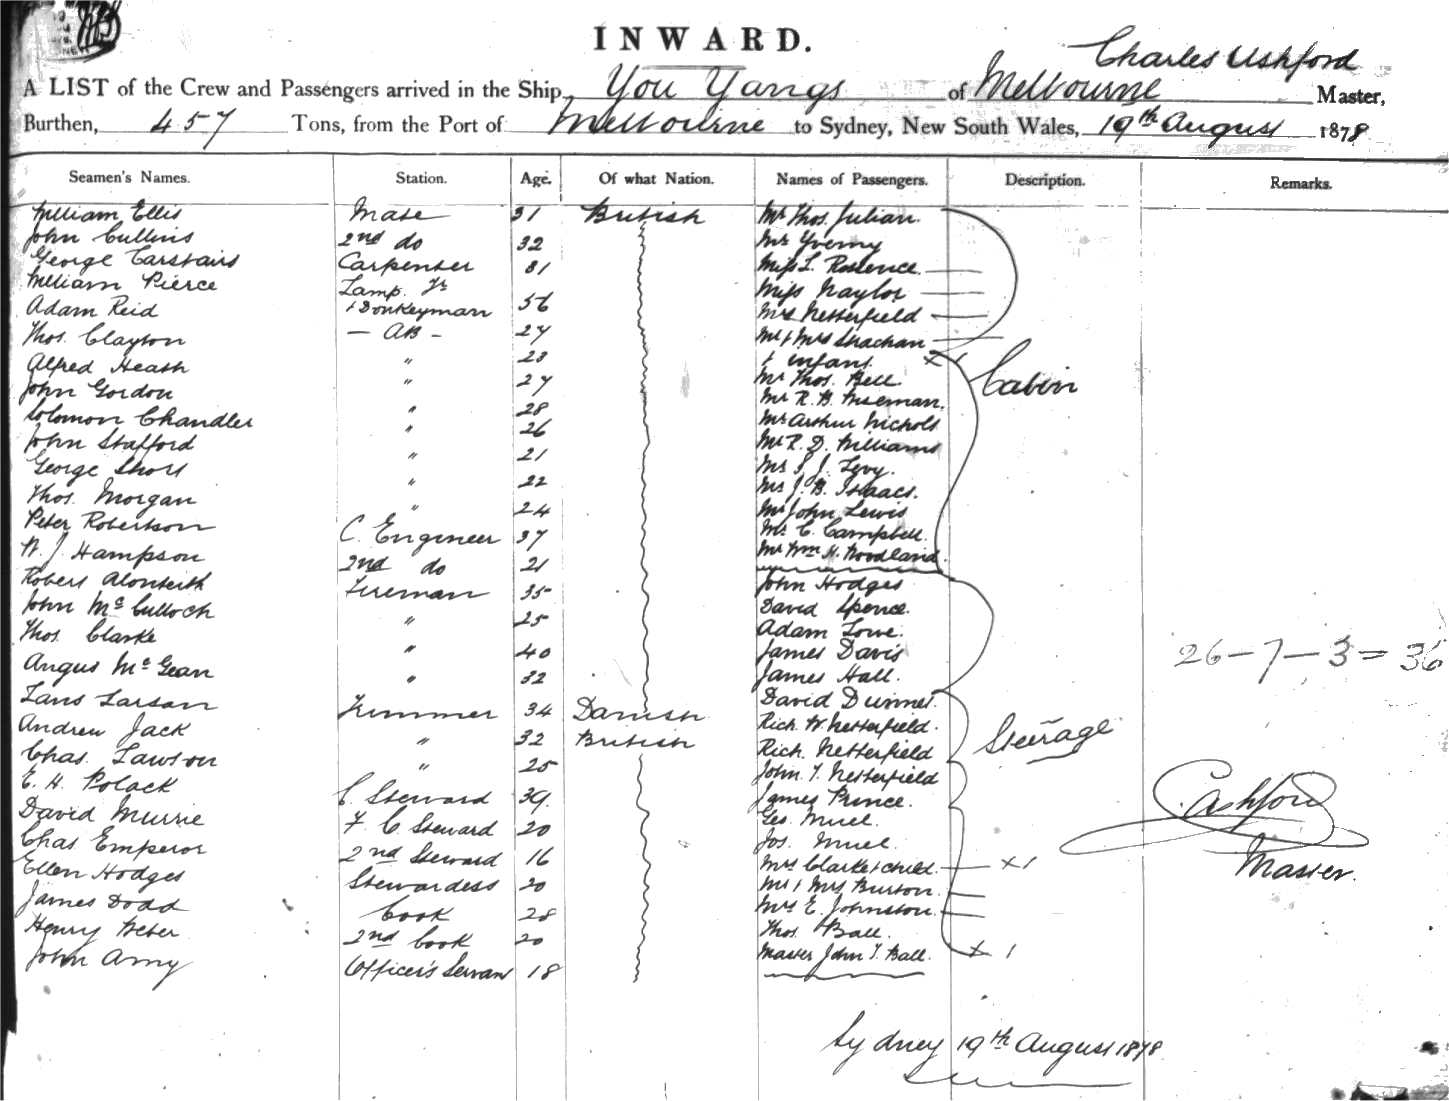 INWARD.
Charles Ashford
A LIST of the Crew and Passengers arrived in the Ship You Yangs of Melbourne Master,
Burthen, 457 Tons, from the Port of Melbourne to Sydney, New South Wales, 19th August 1878
Seamen's Names. Station. Age. Of what Nation. Names of Passengers. Description. Remarks.
William Ellis Mate 31 British Mr Thos. Julian.
John Cullins 2nd do 32 Mr
George Carstairs Carpenter 31 Miss L.
William Pierce Lamp Tr Miss Naylor
Adam Reid & Donkeyman 56 Mrs Netterfield
Thos. Clayton - AB - 27 Mr & Mrs Strachan
Alfred Heath " 23 & infant x 1
John Gordon " 27 Mr Thos. Bell. Cabin
Solomon Chandler " 28 Mr R. B. Wiseman.
John Stafford " 26 Mr Arthur Nichols
George Short " 21 Mr R. D. Williams
Thos. Morgan " 22 Mr S. J. Levy.
Peter Robertson " 24 Mr J. B. Isaacs.
W. J. Hampson C. Engineer 37 Mr John Lewis
Robert 2nd do 21 Mr C. Campbell.
John McCulloch Fireman 35 Mr Wm H. Woodland
Thos. Clarke " 25 John Hodges
Angus McGean " 40 David Spence.
Lans Larson " 32 Adam Lowe.
Andrew Jack Trimmer 34 Danish James Davis
Chas. Lawson " 32 British James Hall.
E. H. Polack " 25 David Dunnet.
David Murrie C. Steward 39. Rich. W. Netterfield.
Chas Emperor F. C. Steward 20 Rich. Netterfield Steerage
Ellen Hodges 2nd Steward 16 John T. Netterfield
James Dodd Stewardess 20 James Prince.
Henry Weber Cook 28 Geo. Muel.
John Amy 2nd Cook 20 Jos. Muel.
Officer's Servan 18 Mrs Clarke & child. x 1
Mr & Mrs Burton.
Mrs E. Johnston.
Thos. Ball.
Master John T. Ball. x 1
26 - 7 - 3 = 36
C. Ashford
Master.
Sydney 19th August 1878